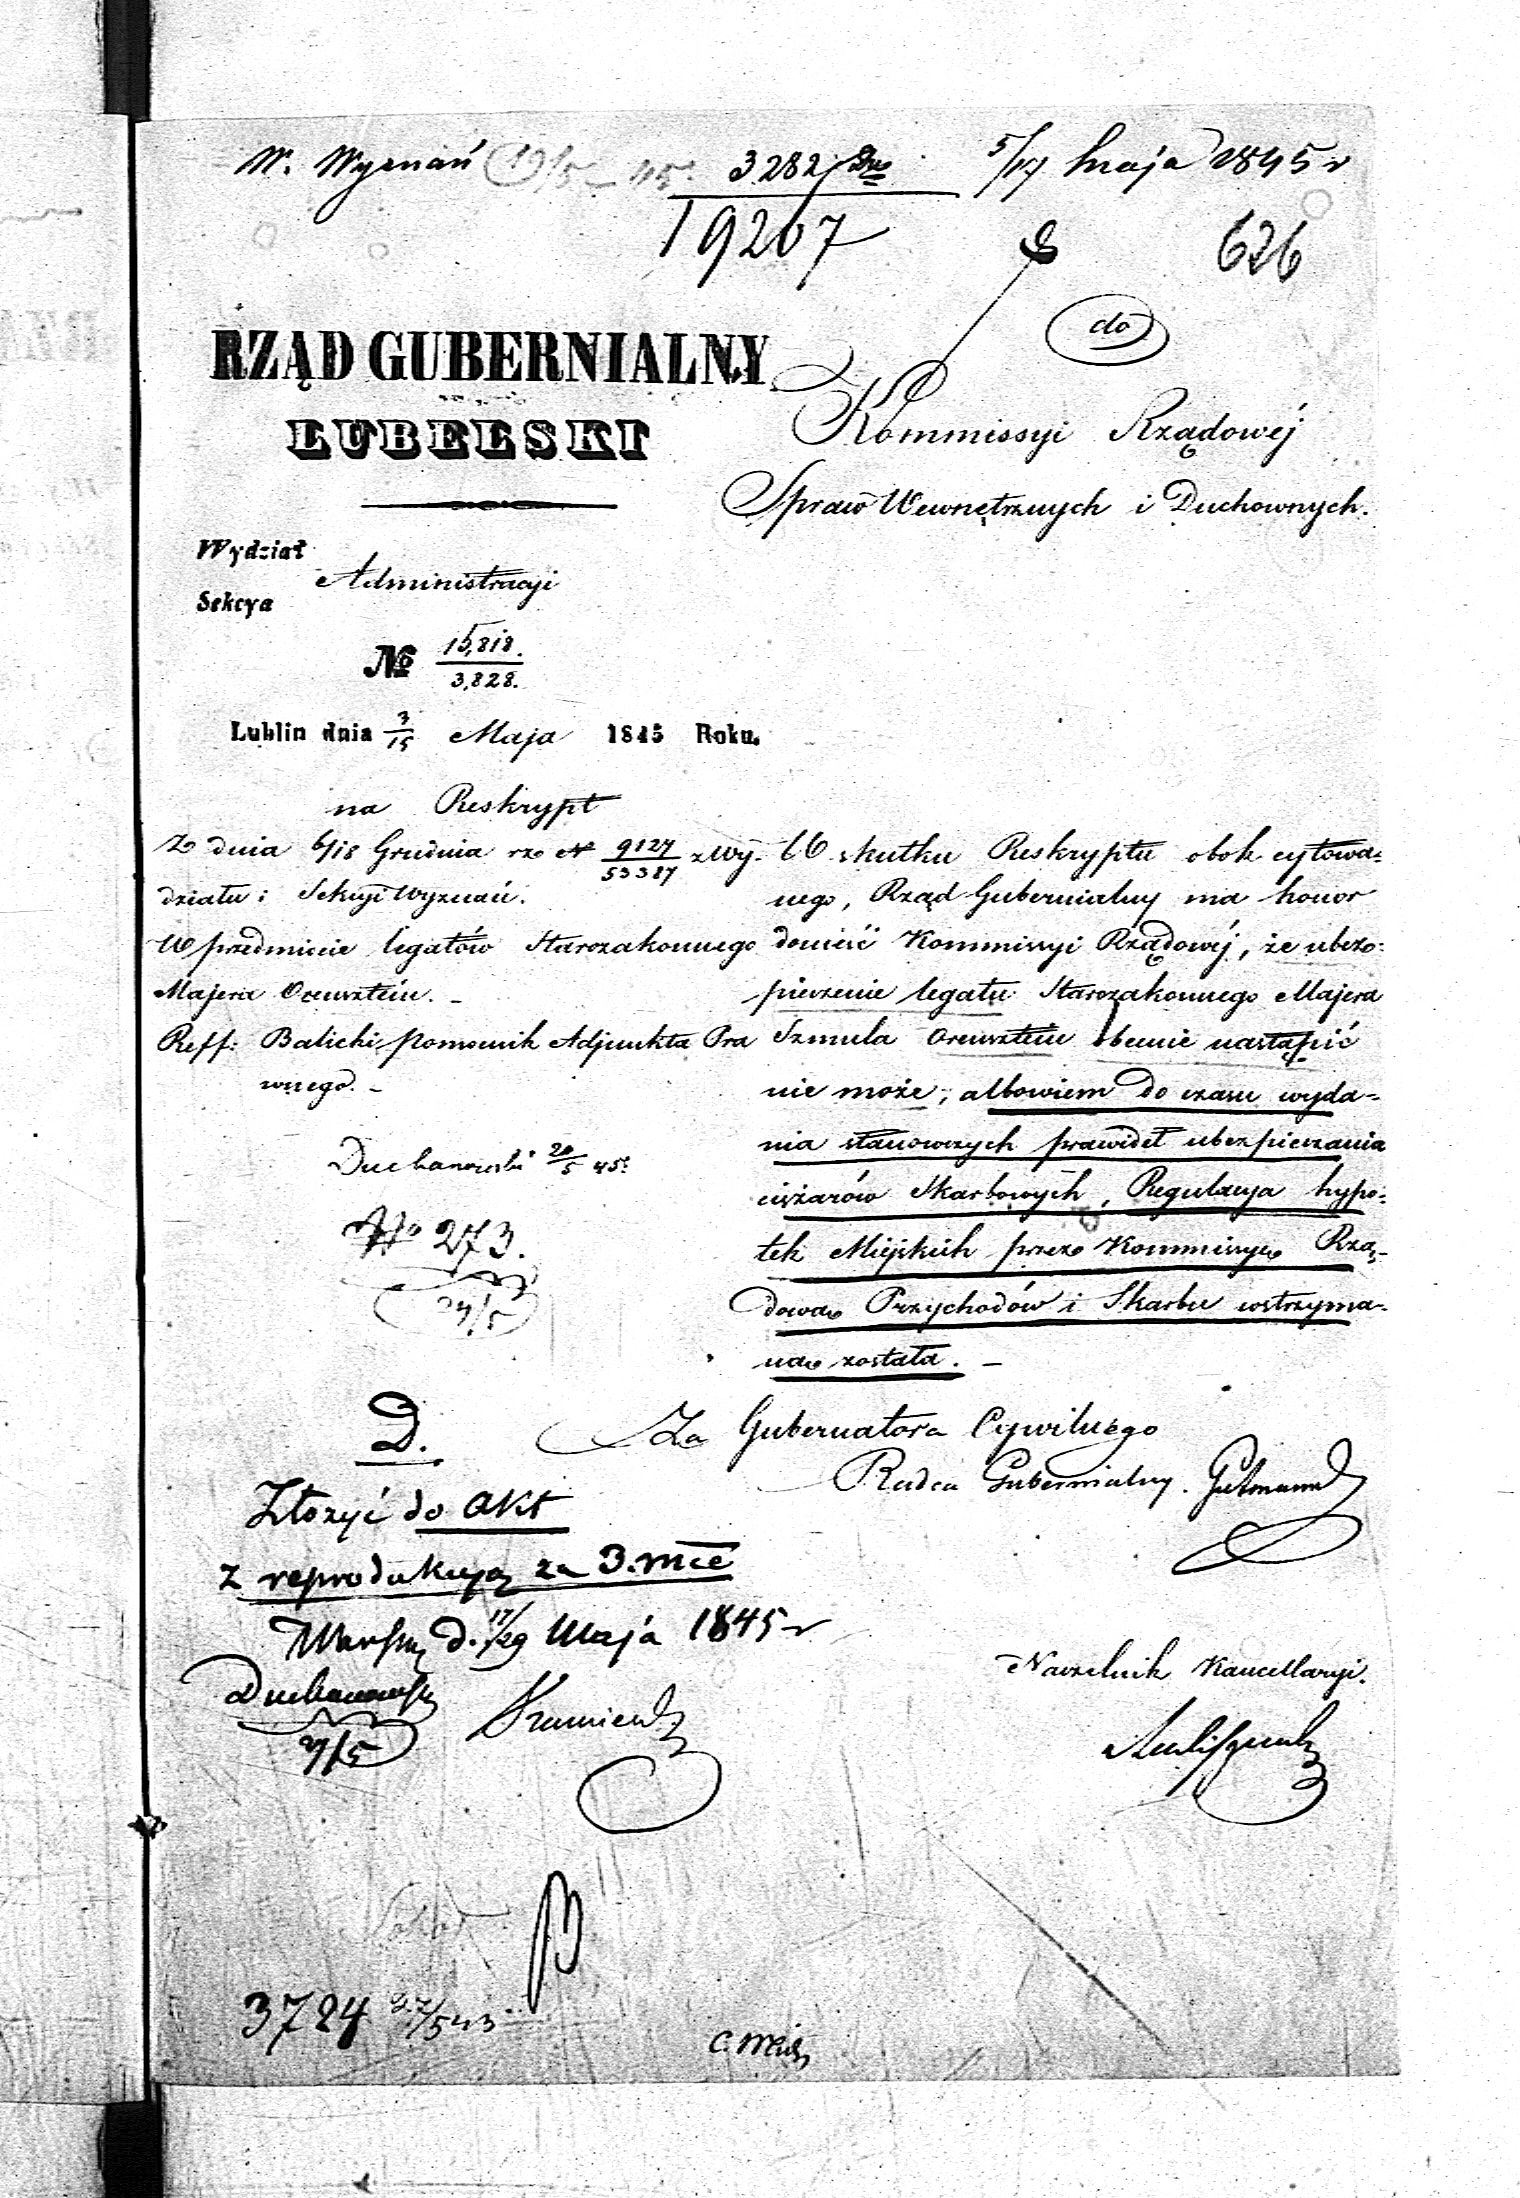 W. Wyznań 19/5 45. 3282/ 5/17 Maja 1845 r
19207
626
do
RZĄD GUBERNIALNY
LUBELSKI
Kommissyi Rządowéj
Spraw Wewnętrznych i Duchownych.
Wydział
Administracyi
Sekcya
No 15,818.
3,828.
Lublin dnia 3/15 Maja 1845 Roku.
na Reskrypt
Z dnia 6/18 Grudnia rz N 9127/53387 z Wy-
działu i Sekcyi Wyznań.
W przedmiocie legatów Starozakonnego
Majera Orensztein. -
Reff: Balicki pomocnik Adjunkta Pra
wnego. -
W skutku Reskryptu obok cytowa-
nego, Rząd Gubernialny ma honor
donieść Kommissyi Rządowéj, że ubez-
pieczenie legatu Starozakonnego Majera
Szmula Orensztein obecnie nastąpić
nie może, albowiem do czasu wyda-
nia stanowczych prawideł ubezpieczania
ciężarów Skarbowych, Regulacya hypo-
tek Miejskich przez Kommissyą Rzą-
dową Przychodów i Skarbu wstrzyma-
ną została. -
Duchanowski 20/5 45.
No 273.
Za Gubernatora Cywilnego
Radca Gubernialny. Gutmann
D.
Złożyć do akt
z reprodukcyą za 3. mce
Warsz d. 17/29 Maja 1845 r
Duchanowski
Naczelnik Kancellaryi.
3724